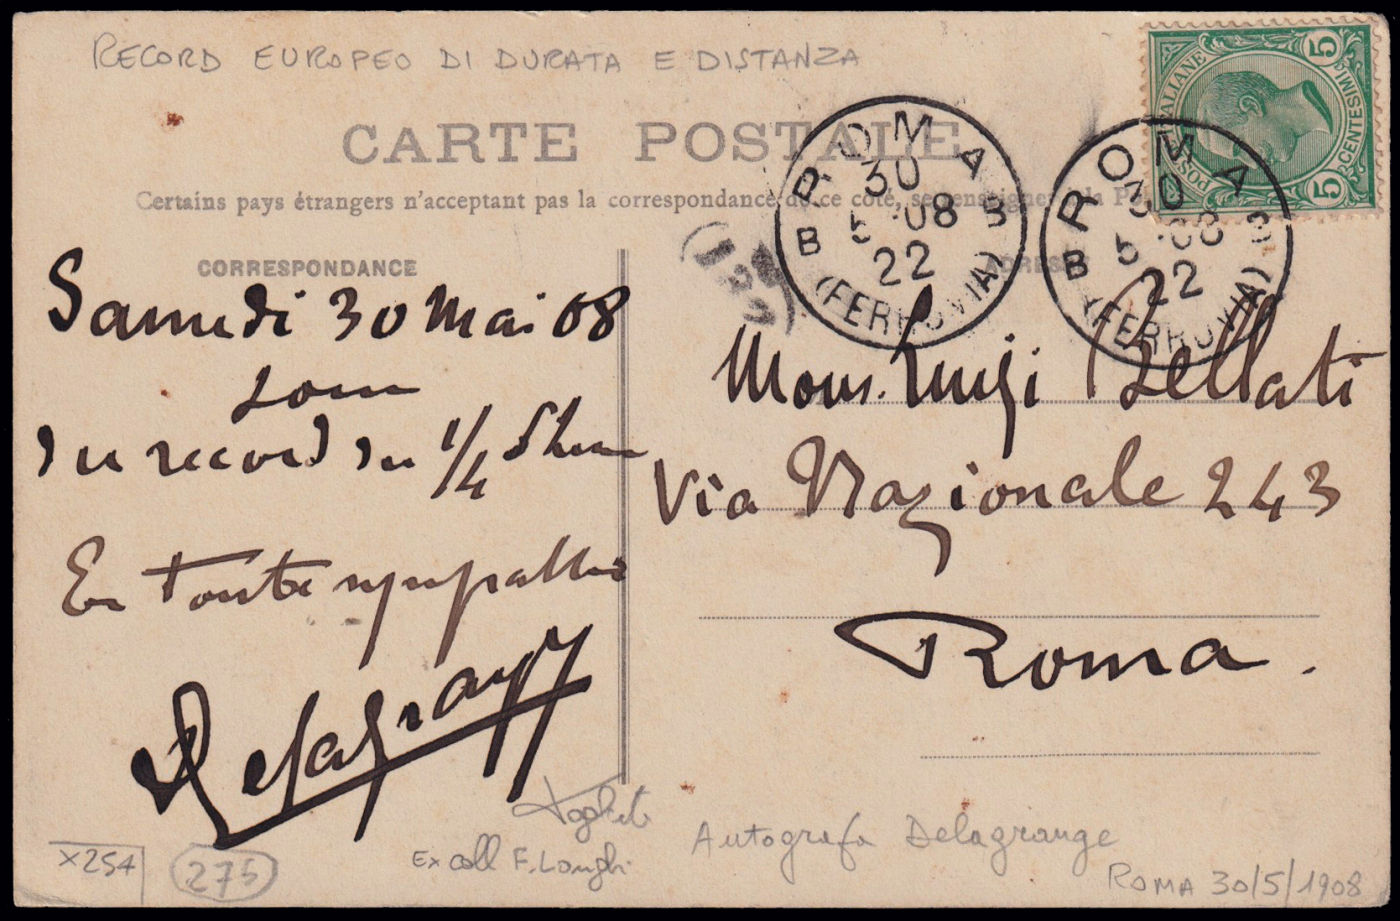 RECORD EUROPEO DI DURATA E DISTANZA
CARTE POSTALE
Certains pays étrangers n'acceptent pas la correspondance de ce côté, se renseigner à la Po
POSTE ITALIANE
5 CENTESIMI 5
ROMA
30
5 ·08
22
B B
(FERROVIA)
ROMA
30
5 ·08
22
B B
(FERROVIA)
CORRESPONDANCE
ADRESSE
Samedi 30 Mai 08
jour
du record du 1/4 d'heure
En toute sympathie
Delagrange
Mons. Luigi Bellati
Via Nazionale 243
Roma.
Ex coll F. Longhi
Autografo Delagrange
ROMA 30/5/1908
X254
275